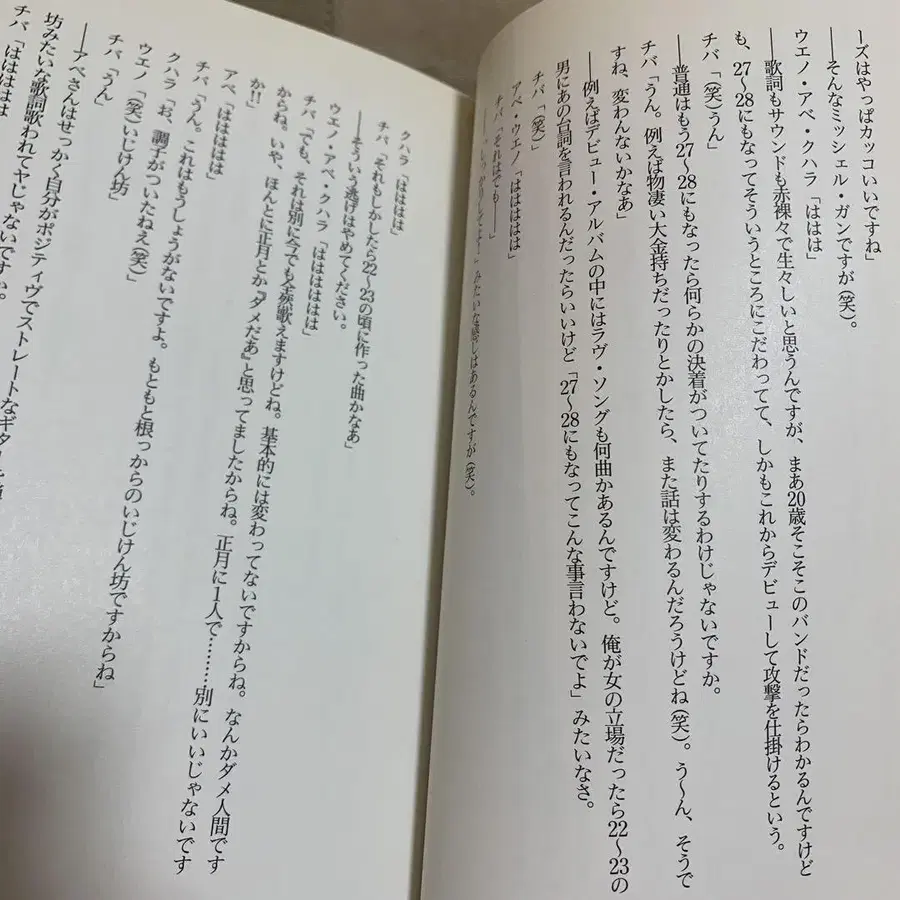 ーズはやっぱカッコいいですね」
──そんなミッシェル・ガンですが(笑)。
ウエノ・アベ・クハラ「ははは」
──歌詞もサウンドも赤裸々で生々しいと思うんですが、まあ20歳そこそこのバンドだったらわかるんですけど
も、27〜28にもなってそういうところにこだわってて、しかもこれからデビューして攻撃を仕掛けるという。
チバ「(笑)うん」
──普通はもう27〜28にもなったら何らかの決着がついてたりするわけじゃないですか。
チバ「うん。例えば物凄い大金持ちだったりとかしたら、また話は変わるんだろうけどね(笑)。う〜ん、そうで
すね、変わんないかなあ」
──例えばデビュー・アルバムの中にはラヴ・ソングも何曲かあるんですけど。俺が女の立場だったら22〜23の
男にあの台詞を言われるんだったらいいけど「27〜28にもなってこんな事言わないでよ」みたいなさ。
チバ「(笑)」
アベ・ウエノ「はははは」
チバ「それはでも──」
みたいな感じはあるんですが(笑)。
クハラ「はははは」
チバ「それもしかしたら22〜23の頃に作った曲かなあ」
──そういう逃げはやめてください。
ウエノ・アベ・クハラ「はははははは」
チバ「でも、それは別に今でも全然歌えますけどね。基本的には変わってないですからね。なんかダメ人間です
からね。いや、ほんとに正月とか『ダメだあ』と思ってましたからね。正月に1人で………別にいいじゃないです
か!!」
アベ「ははははは」
チバ「うん。これはもうしょうがないですよ。もともと根っからのいじけん坊ですからね」
クハラ「お、調子がついたねえ(笑)」
ウエノ「(笑)いじけん坊」
チバ「うん」
──アベさんはせっかく自分がポジティヴでストレートなギター
坊みたいな歌詞歌われてヤじゃないですか。
チバ「ははははは